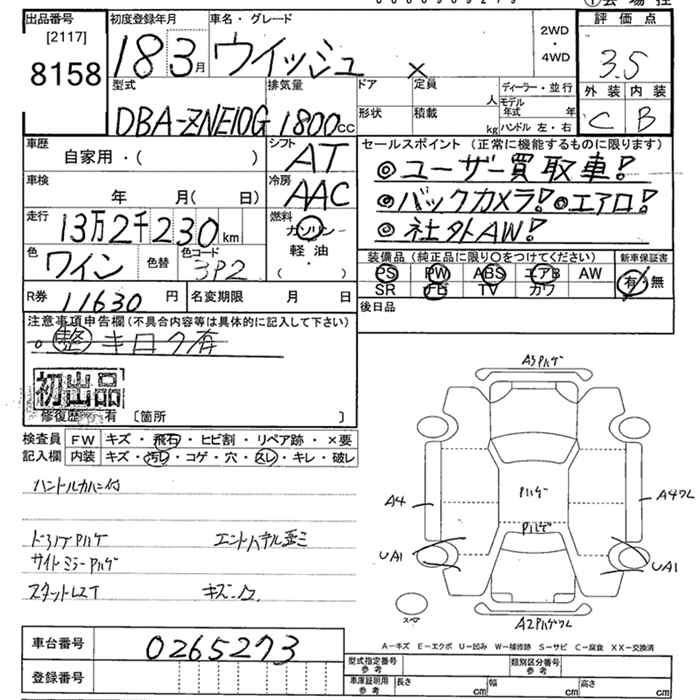 出品番号
[2117]
8158
初度登録年月
18 3月
車名・グレード
ウイッシュ ×
2WD
・
4WD
評価点
3.5
外装 内装
C B
型式
DBA-ZNE10G
排気量
1800cc
ドア 定員
人
形状 積載
kg
ディーラー・並行
モデル
年式 年
ハンドル 左・右
車歴
自家用・( )
シフト
AT
車検
年 月( 日)
冷房
AAC
走行
13万2千230km
燃料
ガソリン
軽油
・( )
色
ワイン
色替
色コード
3P2
R券 11630 円
名変期限 月 日
セールスポイント (正常に機能するものに限ります)
◎ユーザー買取車!
◎バックカメラ!◎エアロ!
◎社外AW!
装備品 (純正品に限り○をつけてください)
PS PW ABS エアB AW
SR ナビ TV カワ
新車保証書
有・無
後日品
注意事項申告欄(不具合内容等は具体的に記入して下さい)
。整 キロク有
初出品
修復歴 有 〔箇所 〕
検査員
記入欄
FW キズ・飛石・ヒビ割・リペア跡・×要
内装 キズ・汚レ・コゲ・穴・スレ・キレ・破レ
ハンドルカバー付
サイドミラーAハゲ
A3Pハゲ
Pハゲ
Pハゲ
A4
A4ワレ
UA1
UA1
スペア
A2Pハゲワレ
A-キズ E-エクボ U-凹み W-補修跡 S-サビ C-腐食 XX-交換済
車台番号 0265273
登録番号
型式指定番号
参考
類別区分番号
参考
車庫証明用
参考
長さ cm 幅 cm 高さ cm